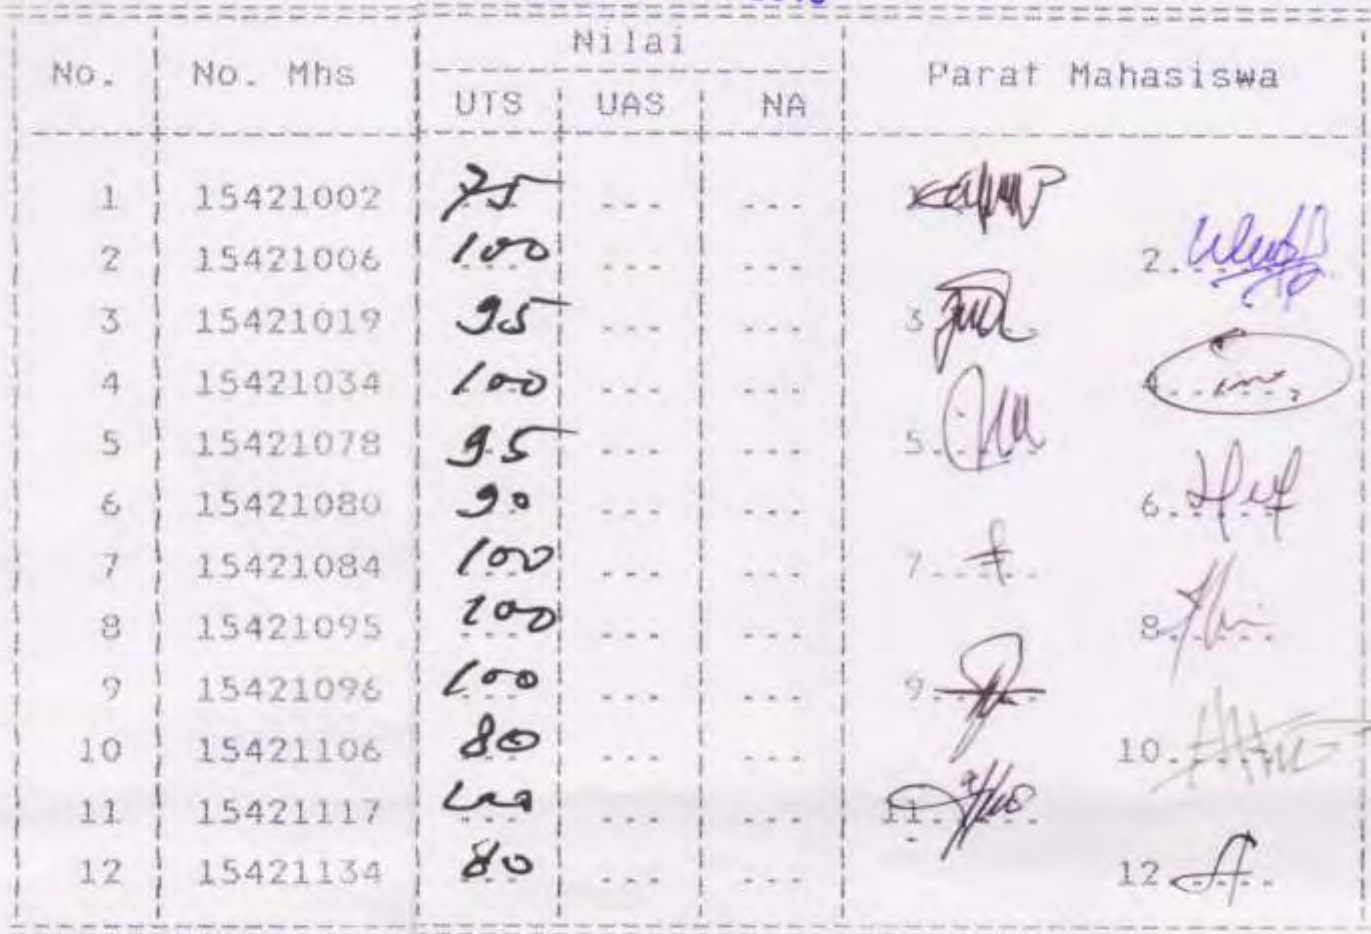 Nilai
No. No. Mhs Paraf Mahasiswa
UTS UAS NA
1 15421002 75 ... ...
2 15421006 100 ... ... 2.
3 15421019 95 ... ... 3
4 15421034 100 ... ...
5 15421078 95 ... ... 5.
6 15421080 90 ... ... 6.
7 15421084 100 ... ... 7
8 15421095 100 ... ... 8.
9 15421096 100 ... ... 9
10 15421106 80 ... ... 10.
11 15421117 100 ... ... 11.
12 15421134 80 ... ... 12